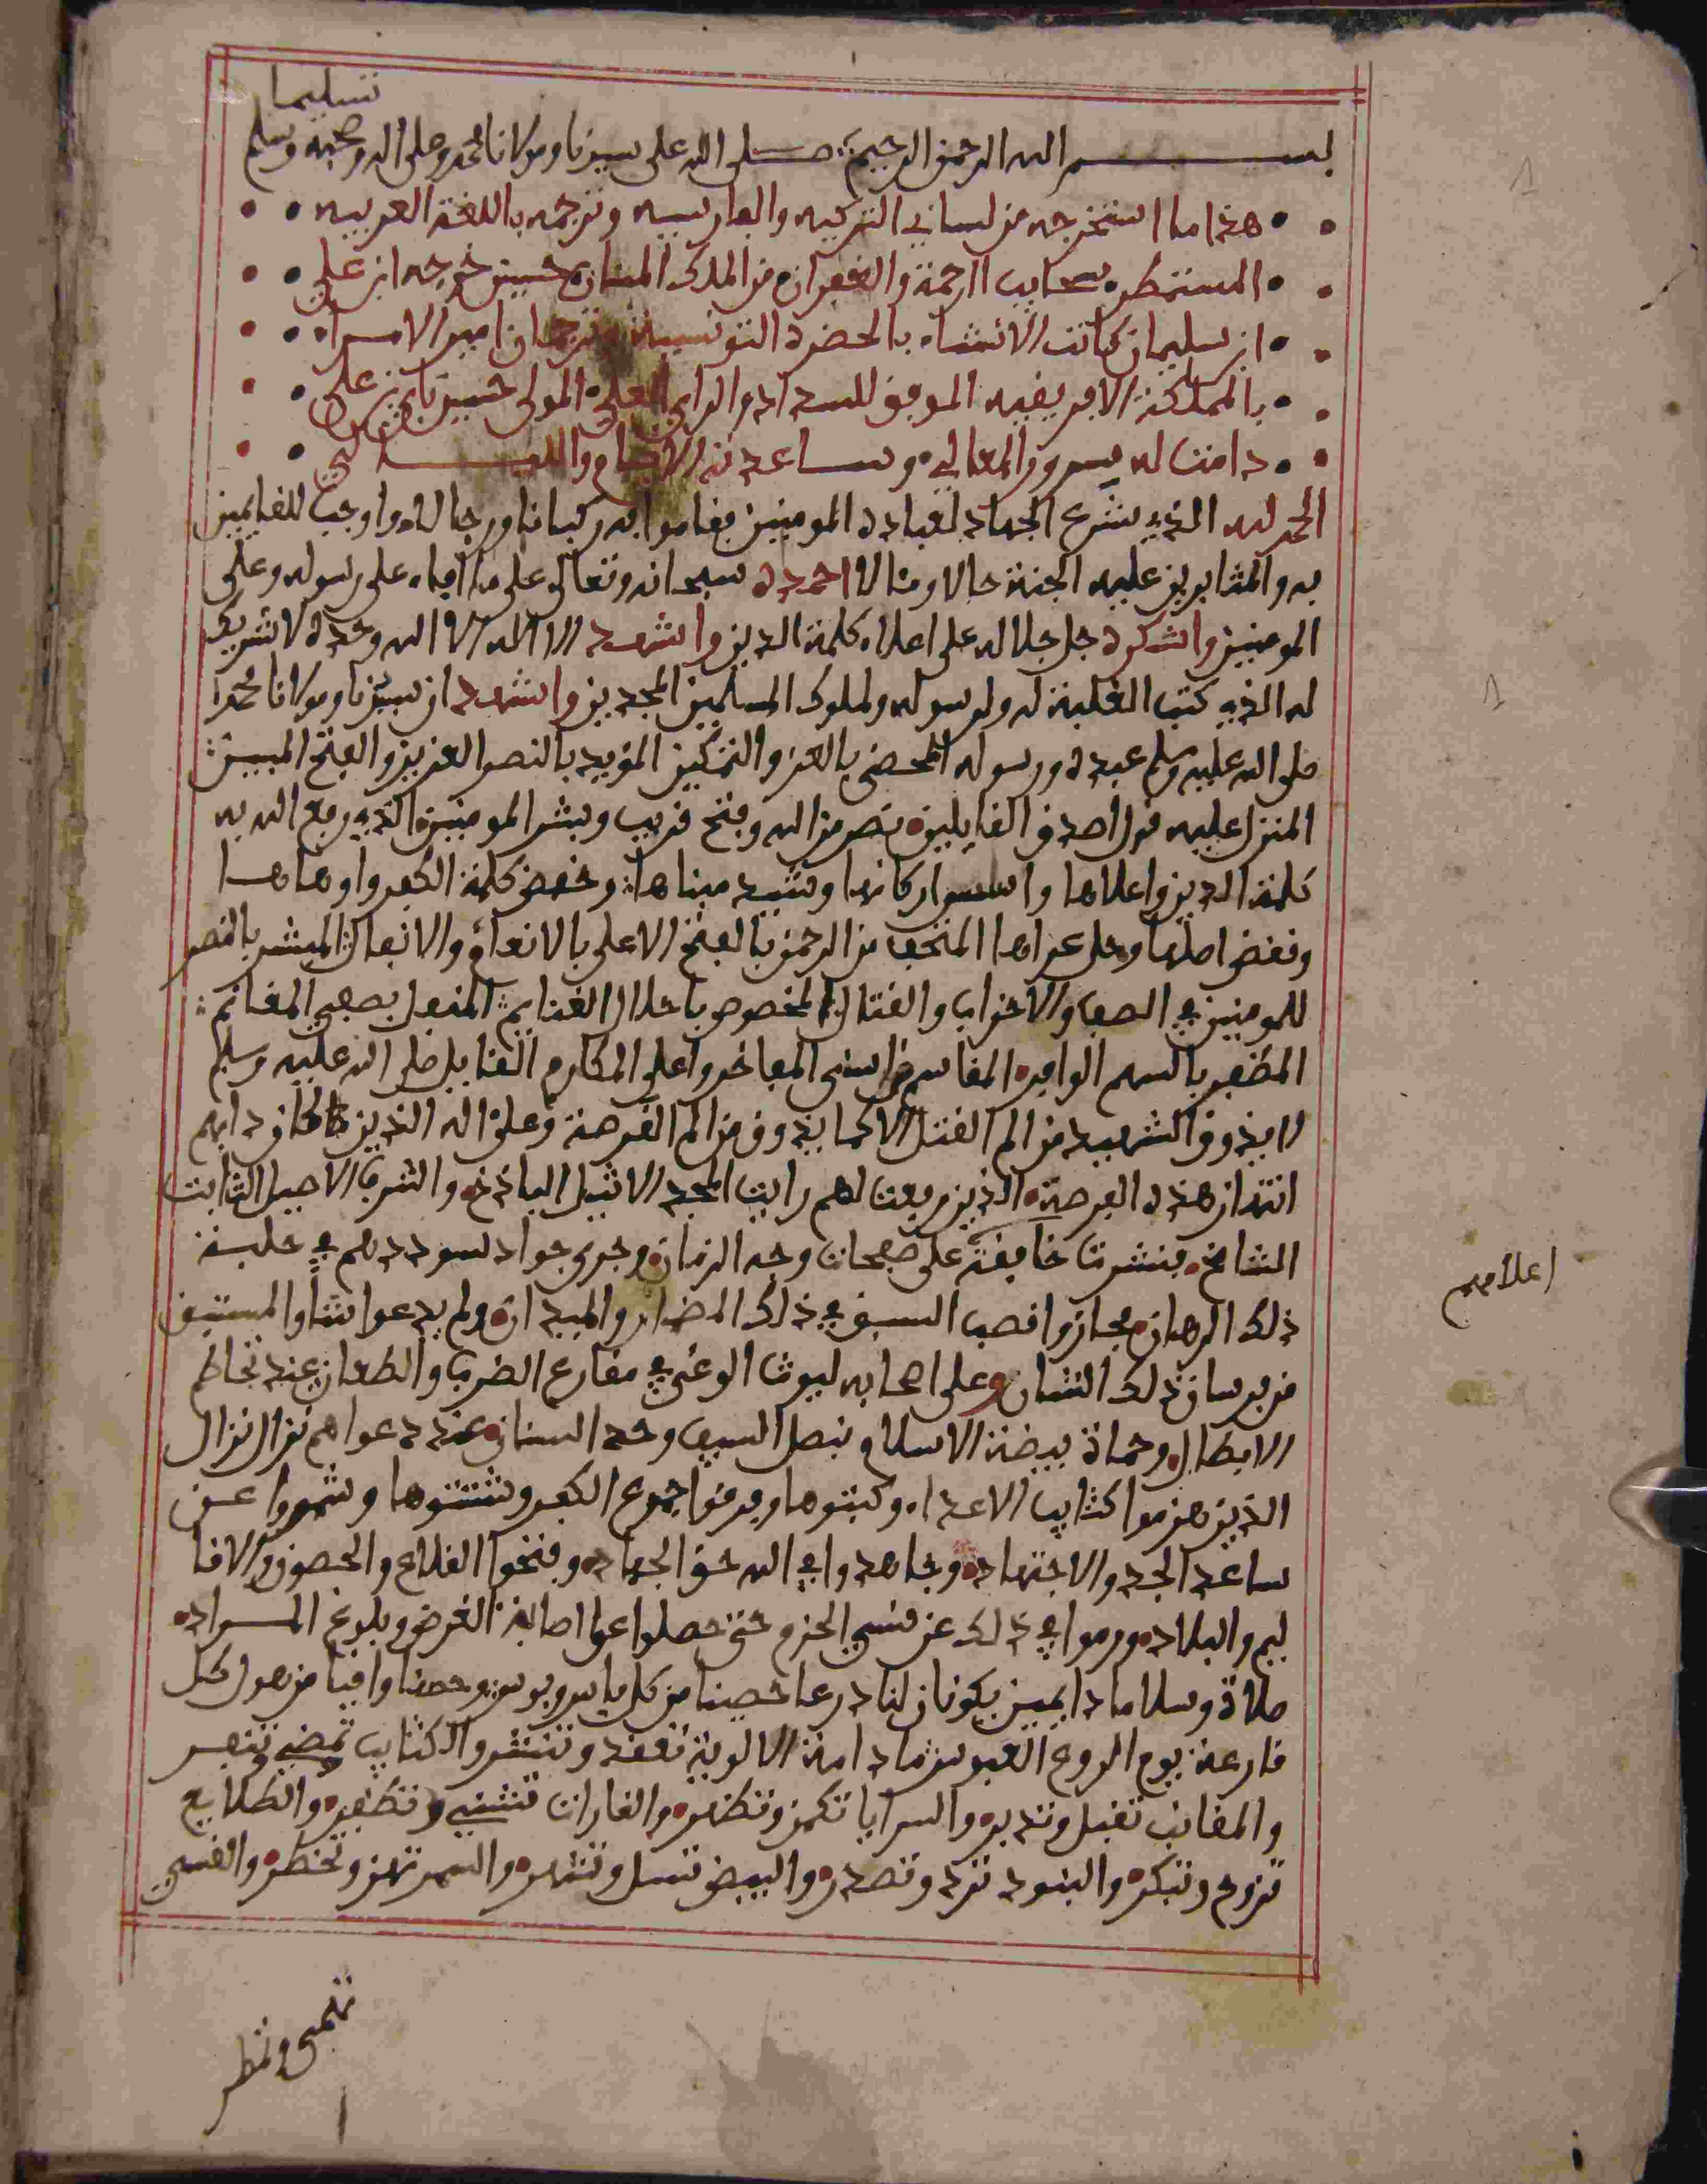 تسليما
بسم الله الرحمن الرحيم صلى الله على سيدنا ومولانا محمد وعلى اله وصحبه وسلم
هذا ما استخرجه من لساني التركيه والفارسيه وترجمه باللغة العربيه
المستمطر سحايب الرحمة والغفران من الملك المنان حسين خوجه ابن علي
ابن سليمان كاتب الانشاء بالحضرة التونسية وترجمان امير الامراء
بالمملكة الافريقيه الموفق للسداد والراي العلي المولى حسين باي بن علي
دامت له سرور المعالي وساعدته الايام والليالي
الحمد لله الذي شرع الجهاد لعباده المومنين فقاموا به ركبانا ورجالا واوجب للقايمين
به والمثابرين عليه الجنة حالا ومئالا احمده سبحانه وتعالى على ما افاء على رسوله وعلى
المومنين واشكره جل جلاله على اعلاء كلمة الدين واشهد ان لا اله الا الله وحده لا شريك
له الذي كتب الغلبة له ولرسوله ولملوك المسلمين المجدين واشهد ان سيدنا ومولانا محمدا
صلى الله عليه وسلم عبده ورسوله المحضى بالعز والتمكين المؤيد بالنصر العزيز والفتح المبين
المنزل عليه قول اصدق القايلين نصر من الله وفتح قريب وبشر المومنين الذي رفع الله به
كلمة الدين واعلاها واسس اركانها وشيد مبناها وخفض كلمة الكفر واوهاها
ونقض اصلها وحل عراها المتحف من الرحمن بالفتح الاعلى بالانعام والانفال المبشر بالنصر
للمومنين في الصف والاحزاب والقتال المخصوص باحلال الغنايم المنفل بصفي المغانم
المظفر بالسهم الوافر المقاسم من اسنى المفاخر واعلى المكارم القايل صلى الله عليه وسلم
لا يذوق الشهيد من الم القتل الا كما يذوق من الم القرصة وعلى اله الذين كان دابهم
انتهاز هذه الفرصة الذين رفعت لهم رايت المجد الاثيل الباذخ والشرف الاصيل الثابت
الشامخ فنشرت خافقة على صفحات وجه الزمان وجرى جواد سوددهم في حلبة
ذلك الرهان فحازوا قصب السبق في ذلك المضمار والميدان ولم يدعوا شاوا لمستبق
من فرسان ذلك الشان وعلى اصحابه ليوث الوغى في مقارع الضرب والطعان عند تحاطم
الابطال وحماة بيضة الاسلام بنصل السيف وحد السنان عند دعواهم نزال نزال
الذين هزموا كتايب الاعداء وكبتوها وفرقوا جموع الكفر وشتتوها وشمروا عن
ساعد الجد والاجتهاد وجاهدوا في الله حق الجهاد وفتحوا القلاع والحصون والاقا
ليم والبلاد ورموا في ذلك عن قسي الحزم حتى حصلوا على اصابة الغرض وبلوغ المراد
صلاة وسلاما دايمين يكونان لنا درعا حصينا من كل باس وبوس وحصنا واقيا من هول كل
قارعة يوم الروع العبوس ما دامت الالوية تعقد وتنشر والكتايب تمضي وتنصر
والمقانب تقبل وتدبر والسرايا تكمن وتظهر والغارات تشني وتظفر والطلايع
تروح وتبكر والبنود ترد وتصدر والبيض تسل وتشهر والسمر تهز وتخطر والقسي
تقمى وتمطر
اعلامهم